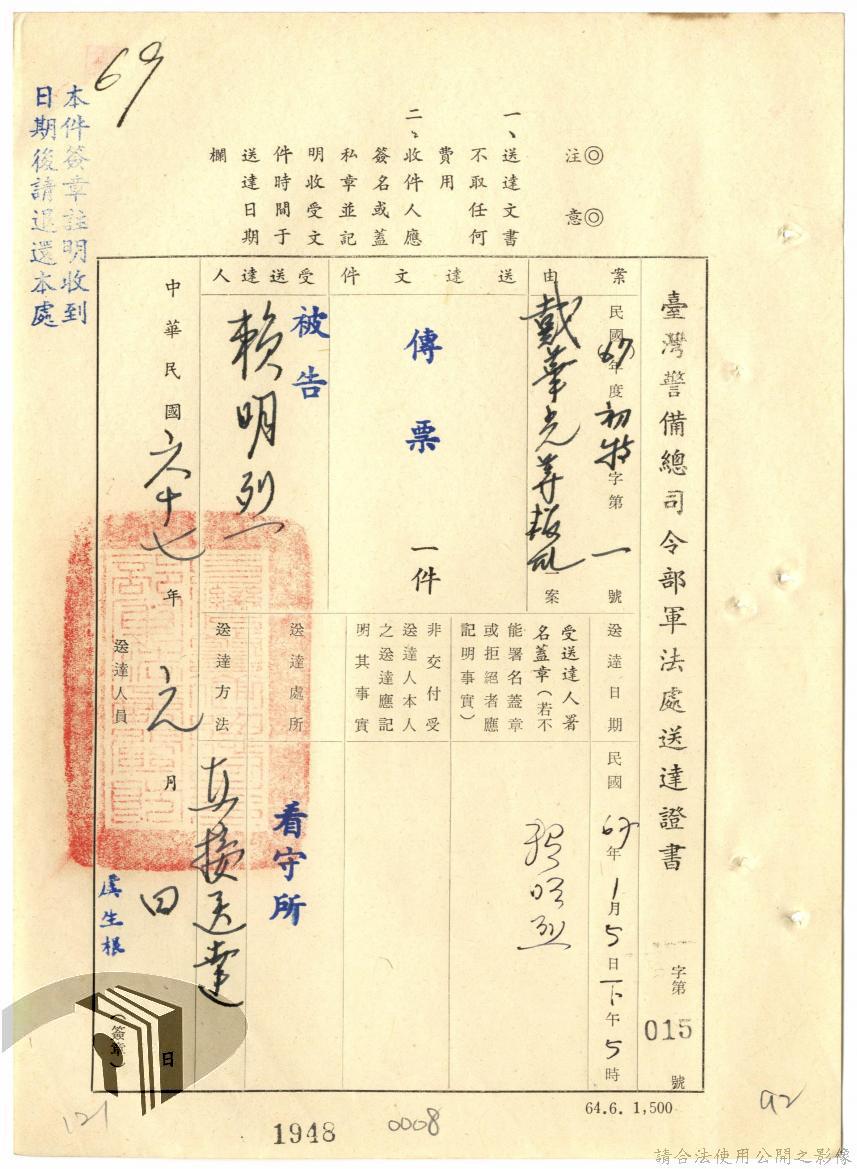 69
本件簽章註明收到
日期後請退還本處
注意
一、送達文書
不取任何
費用
二、收件人應
簽名或蓋
私章並記
明收受文
件時間于
送達日期
欄
臺灣警備總司令部軍法處送達證書
字第
015
號
案由
民國(67)年度初特字第一號
戴華光等叛亂一案
送達文件
傳票
一件
受送達人
被告
賴明烈
送達日期
民國67年1月5日下午5時
受送達人署
名蓋章(若不
能署名蓋章
或拒絕者應
記明事實)
賴明烈
非交付受
送達人本人
之送達應記
明其事實
送達處所
看守所
送達方法
直接送達
中華民國六十七年元月四日
送達人員
虞生根
(簽章)
64.6. 1,500
121
1948
0008
92
請合法使用公開之影像